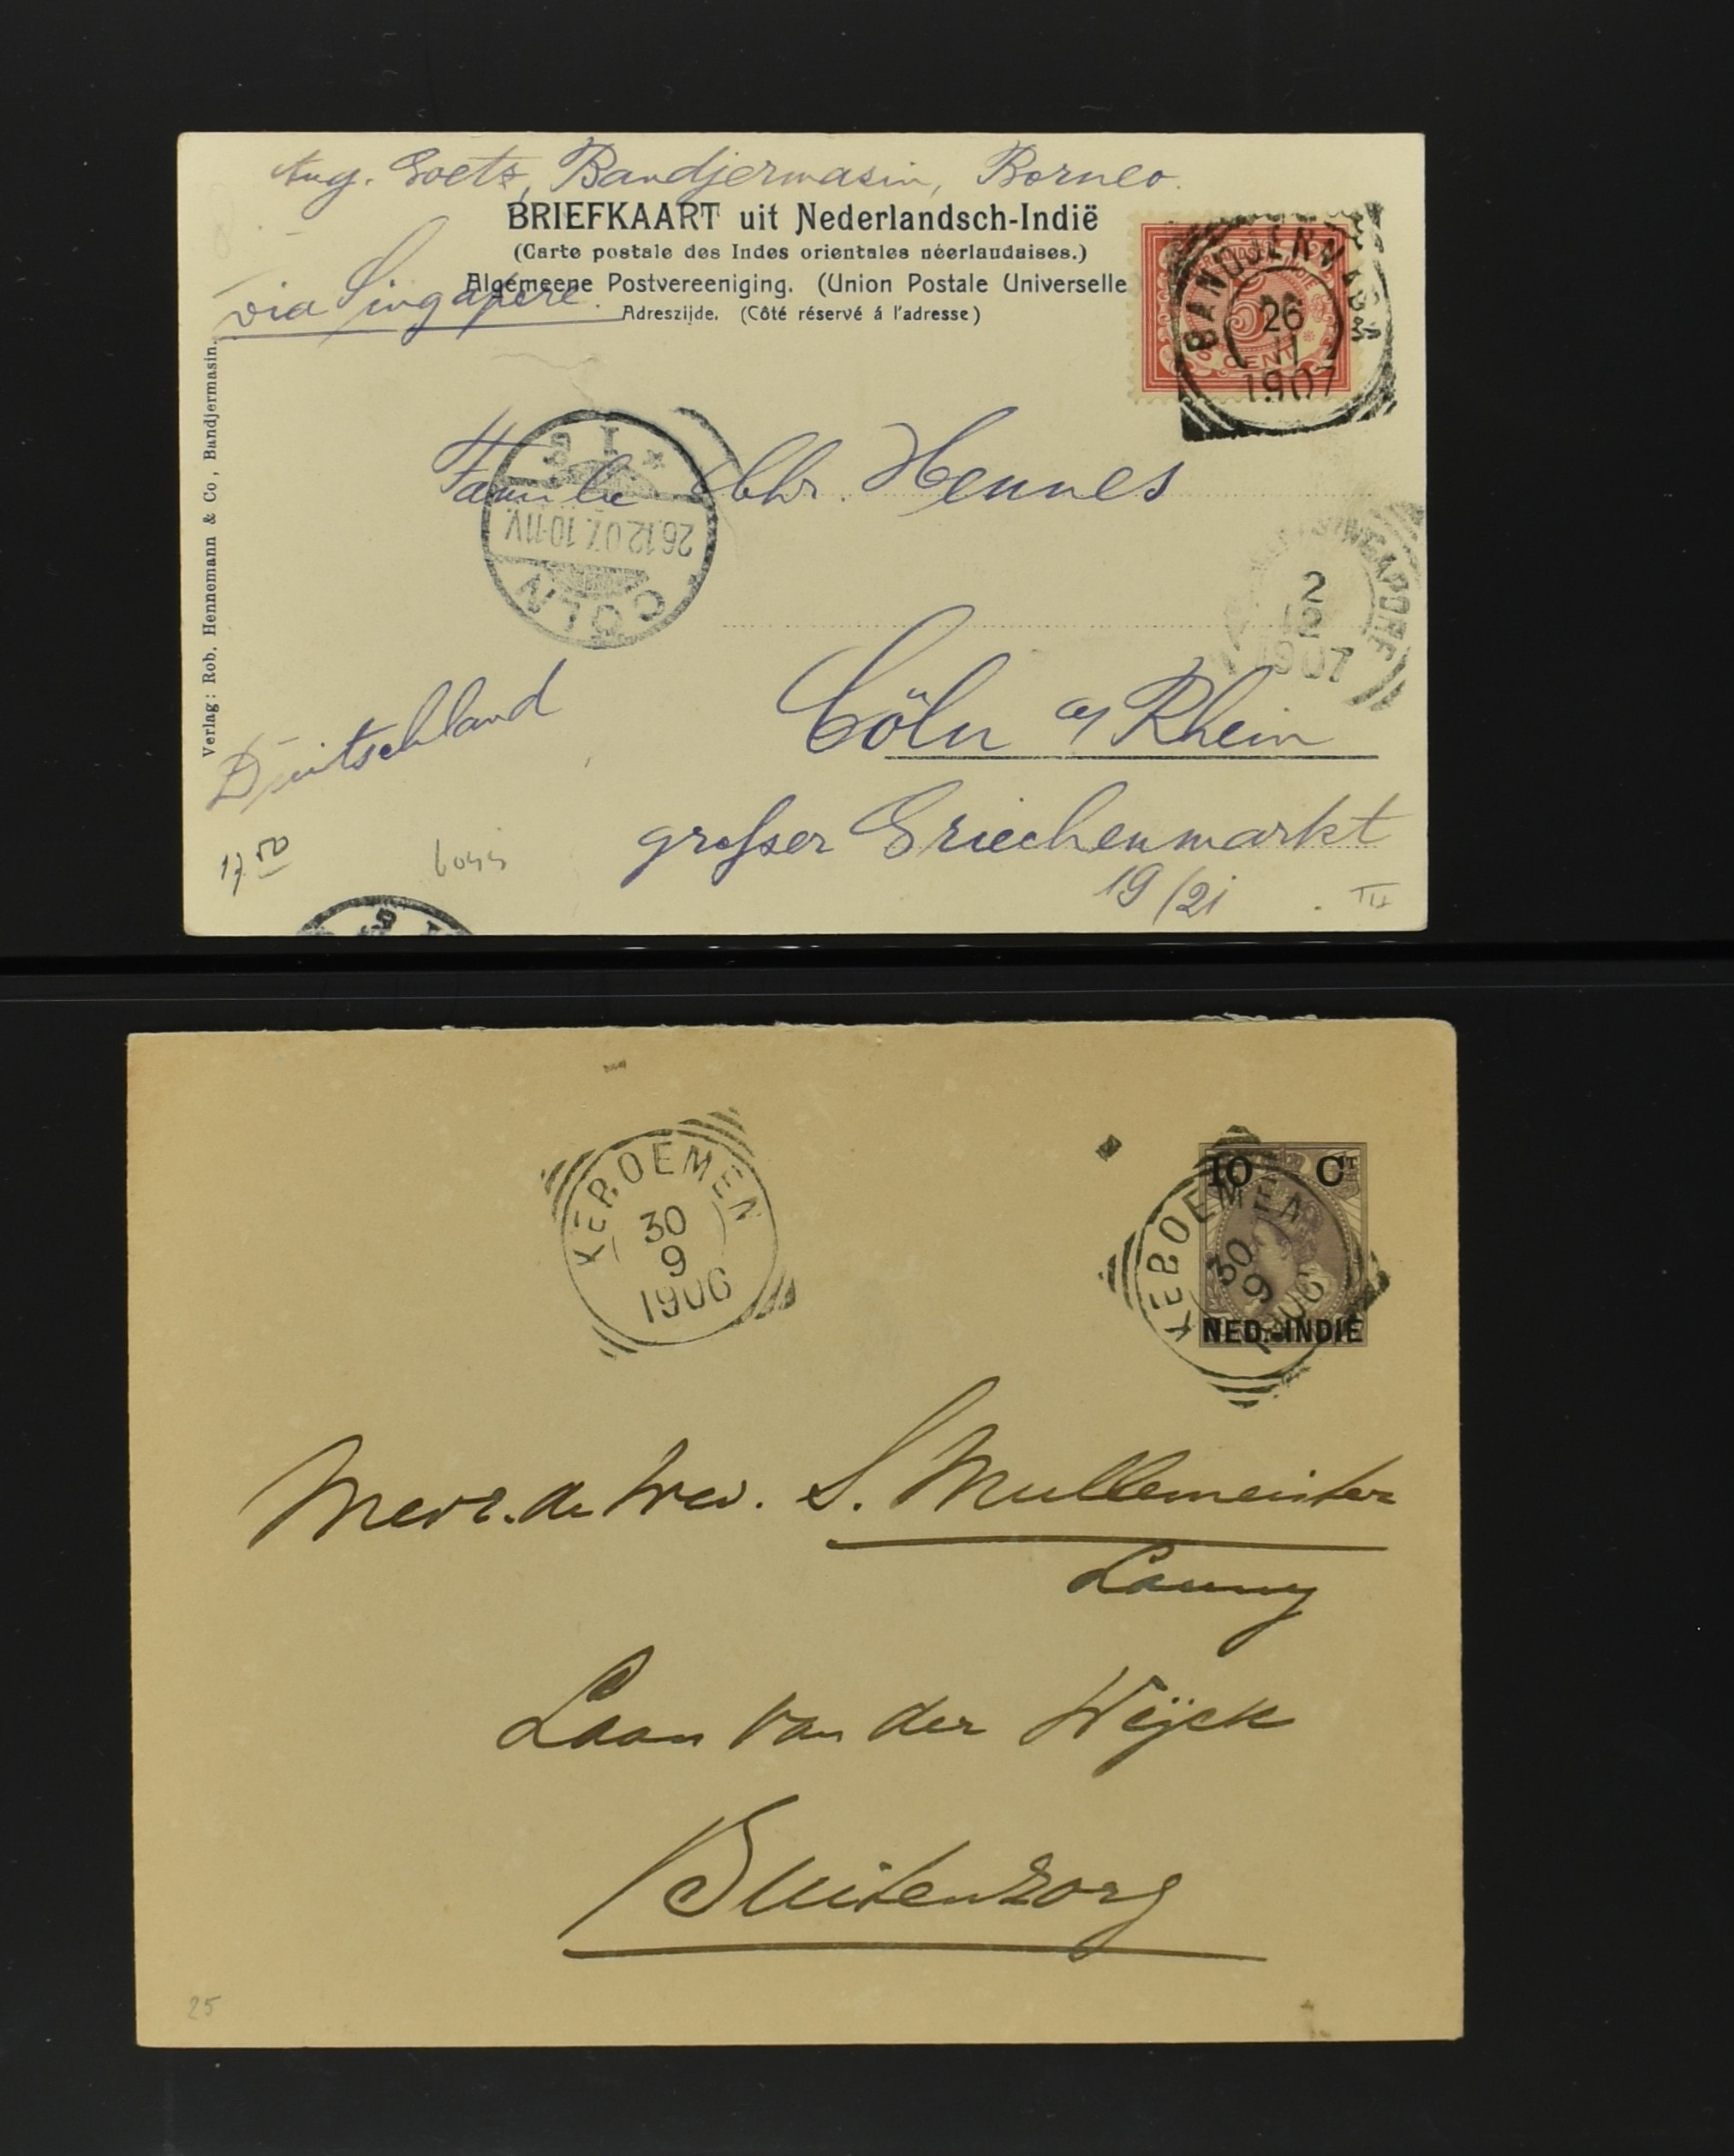 Aug. Goets, Bandjermasin, Borneo.
BRIEFKAART uit Nederlandsch-Indië
(Carte postale des Indes orientales néerlandaises.)
via Singapore.
Algemeene Postvereeniging. (Union Postale Universelle
Adreszijde. (Côté réservé á l'adresse)
5 CENT
BANDJERMASIN
26
11
1907
Verlag: Rob. Hennemann & Co, Bandjermasin.
Familie Chr. Hennes
CÖLN
26.12.07. 10-11V.
* 1
SINGAPORE
2
12
1907
Cöln a/ Rhein
Deutschland
grosser Griechenmarkt
19/21
17.50
III
KEBOEMEN
30
9
1906
10 CT
NED.-INDIË
KEBOEMEN
30
9
1906
Mevr. de Wed. S. Mullemeister
Launy
Laan van der Wijck
Buitenzorg
25